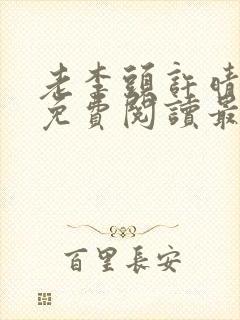 老李頭許晴
免費閱讀最
百里長安